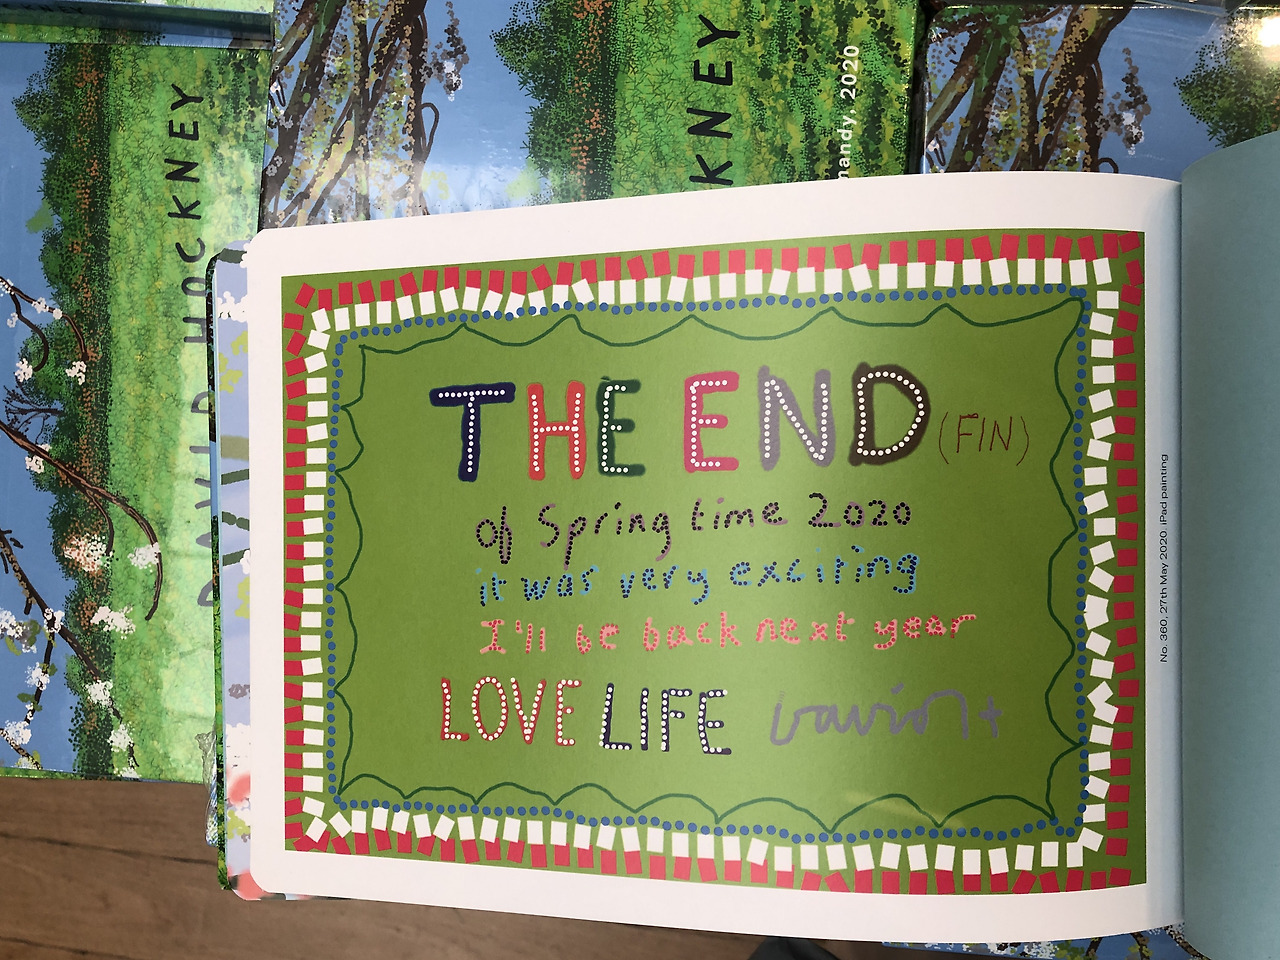 THE END (FIN)
of Spring time 2020
it was very exciting
I'll be back next year
LOVE LIFE
No. 360, 27th May 2020. iPad painting
DAVID HOCKNEY
KNEY
mandy, 2020